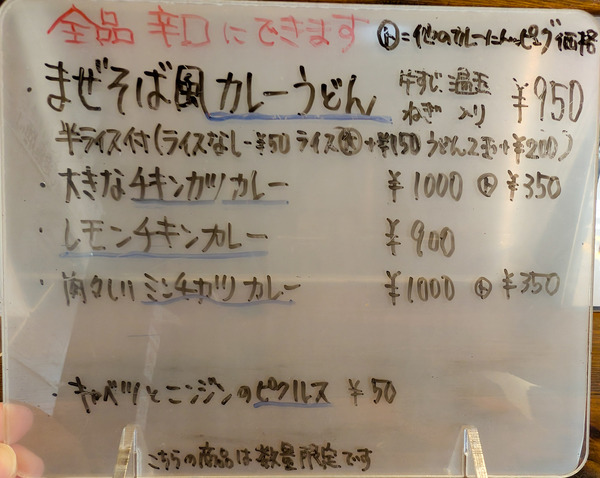 全品 辛口にできます ㋣=他のカレーにトッピング価格
・まぜそば風カレーうどん 牛すじ 温玉 ねぎ 入り ¥950
半ライス付(ライスなし-¥50 ライス大+¥150 うどん2玉+¥200)
・大きなチキンカツカレー ¥1000 ㋣ ¥350
・レモンチキンカレー ¥900
・肉々しいミンチカツカレー ¥1000 ㋣ ¥350
・キャベツとニンジンのピクルス ¥50
こちらの商品は数量限定です